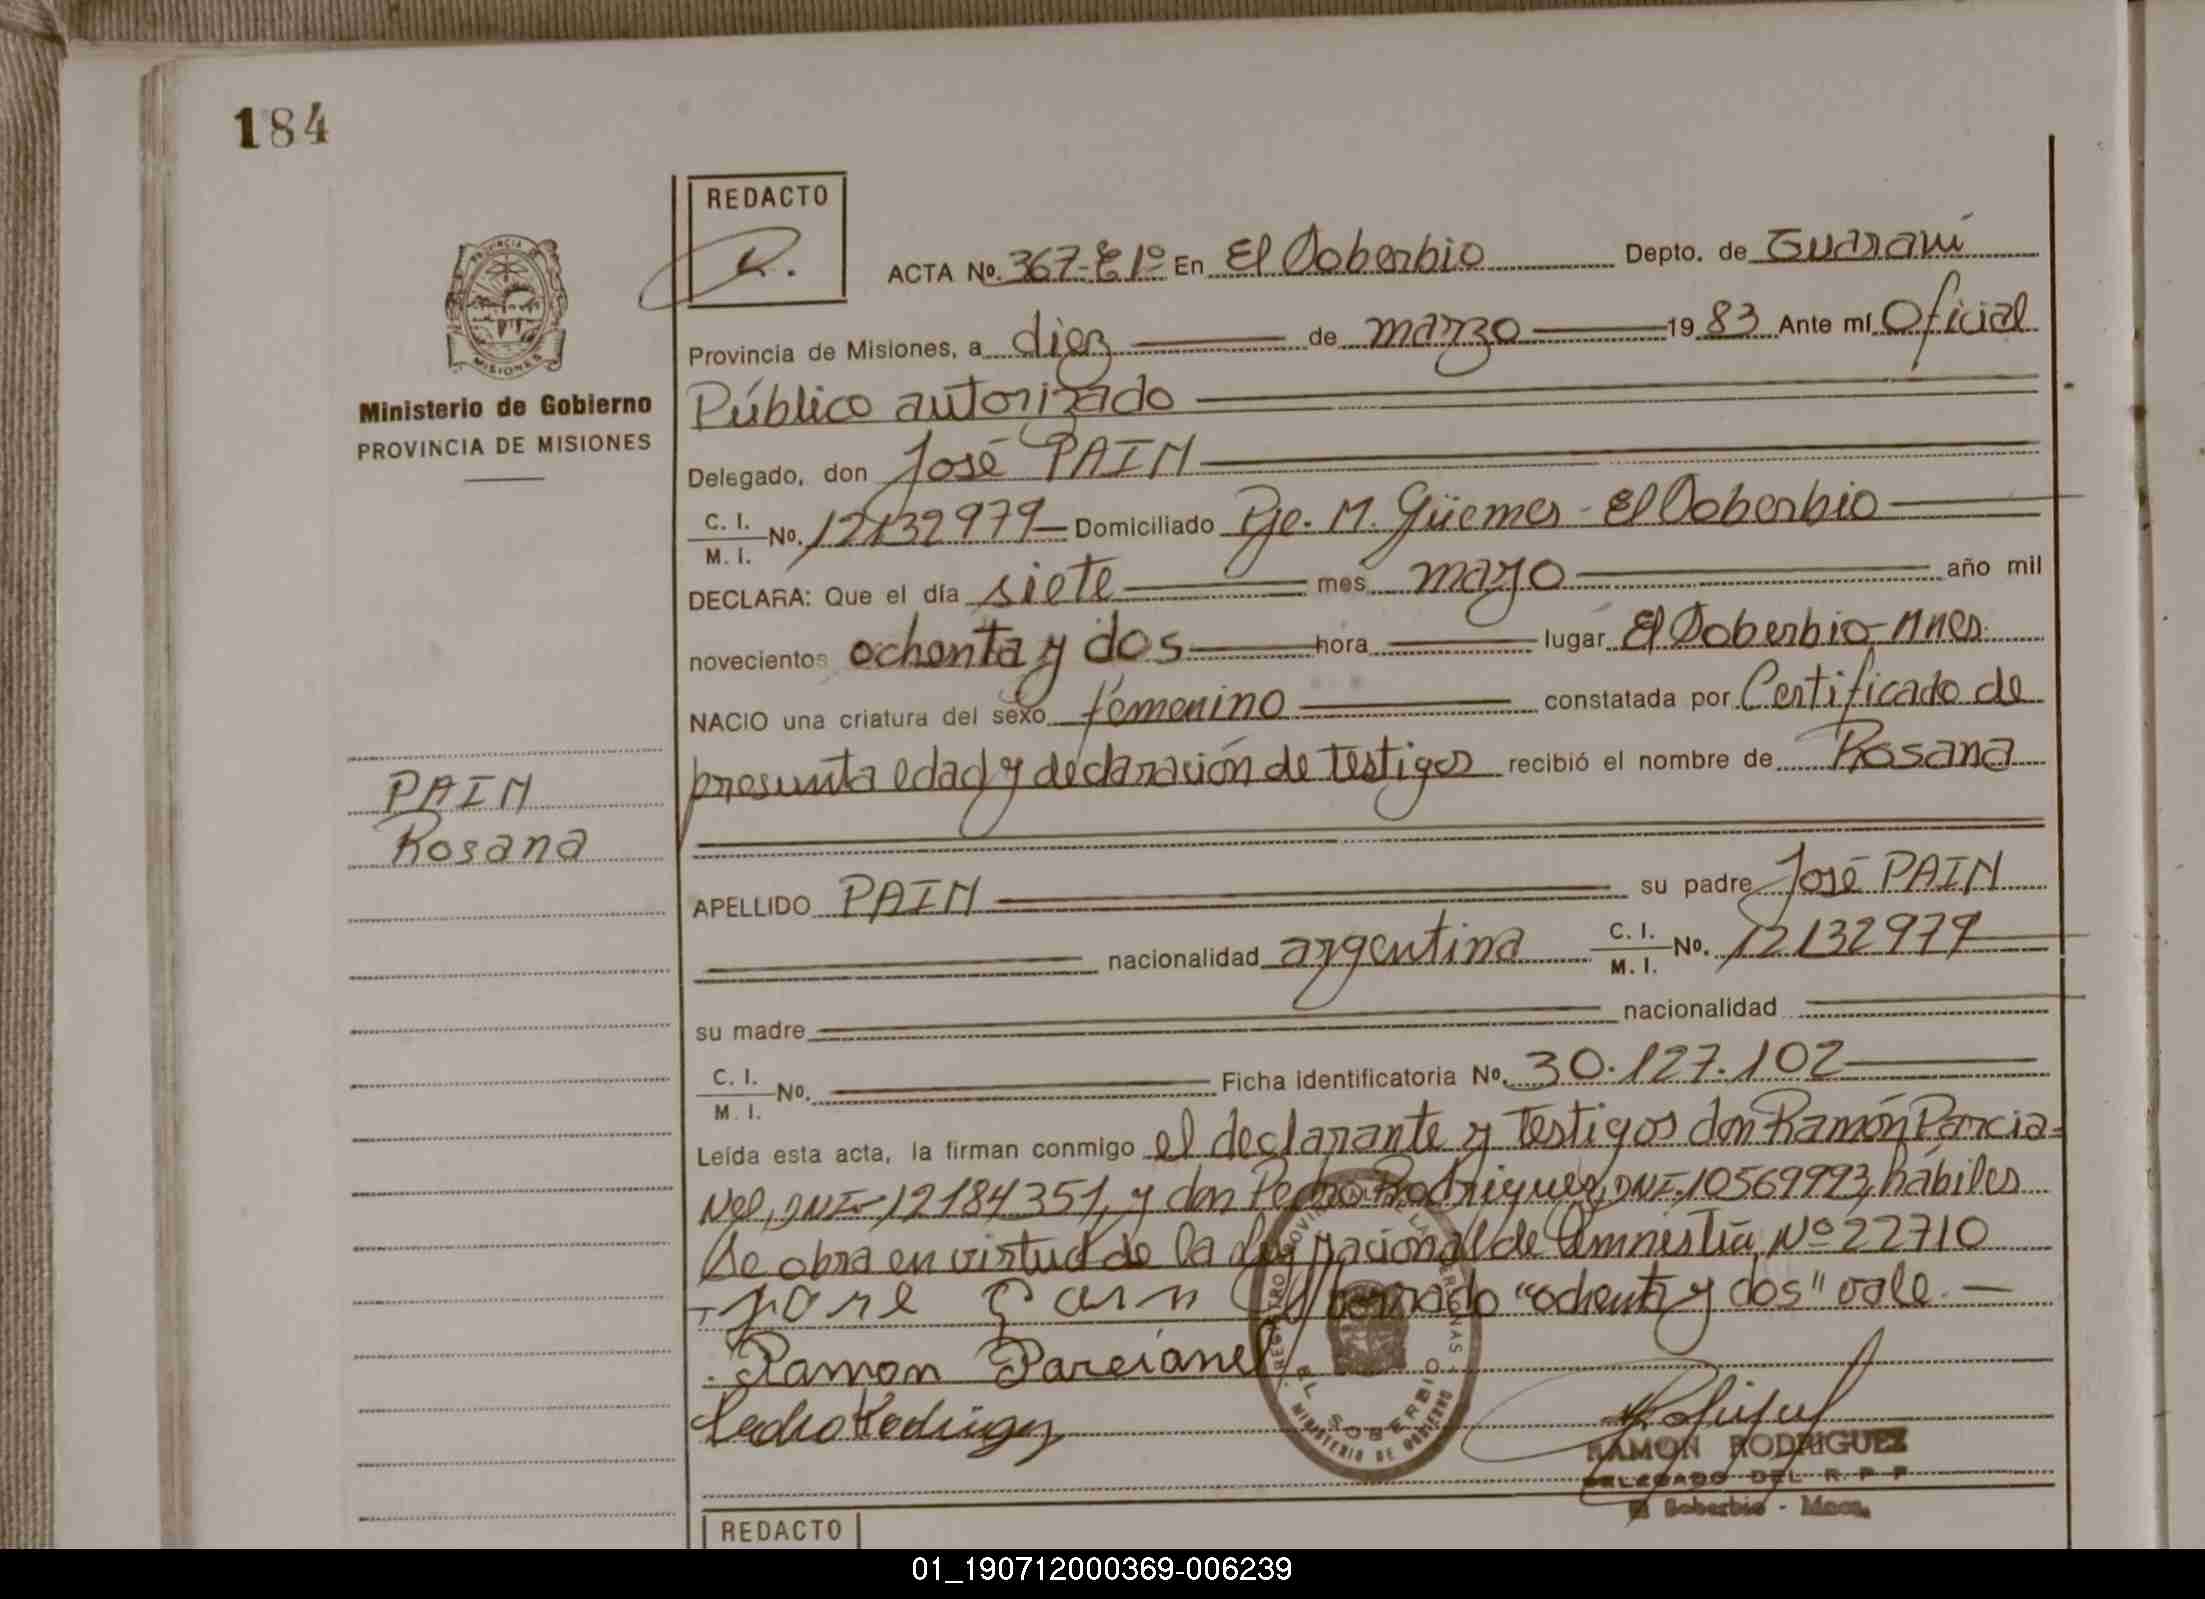 184
REDACTO
ACTA No. 367-E1º En El Soberbio Depto. de Guaraní
Provincia de Misiones, a diez de marzo 1983 Ante mí Oficial
Ministerio de Gobierno
PROVINCIA DE MISIONES
Público autorizado
Delegado, don José PAIM
C. I.
M. I. No. 12132979 Domiciliado Pje. M. Güemes - El Soberbio
DECLARA: Que el día siete mes mayo año mil
novecientos ochenta y dos hora lugar El Soberbio-Mnes.
NACIO una criatura del sexo femenino constatada por Certificado de
presunta edad y declaración de testigos recibió el nombre de Rosana
PAIM
Rosana
APELLIDO PAIM su padre José PAIM
nacionalidad argentina C. I.
M. I. No. 12132979
su madre nacionalidad
C. I.
M. I. No. Ficha identificatoria No. 30.127.102
Leída esta acta, la firman conmigo el declarante y testigos don Ramón Parcia-
nel, DNI-12184351, y don Pedro Rodriguez, DNI-10569993, hábiles
Se obra en virtud de la Ley nacional de Amnistía, Nº 22710
"ochenta y dos" vale.
Ramon Parcianel
Pedro Rodriguez
EL SOBERBIO
MINISTERIO DE GOBIERNO
RAMON RODRIGUEZ
DELEGADO DEL R. P. P.
El Soberbio - Mnes.
REDACTO
01_190712000369-006239